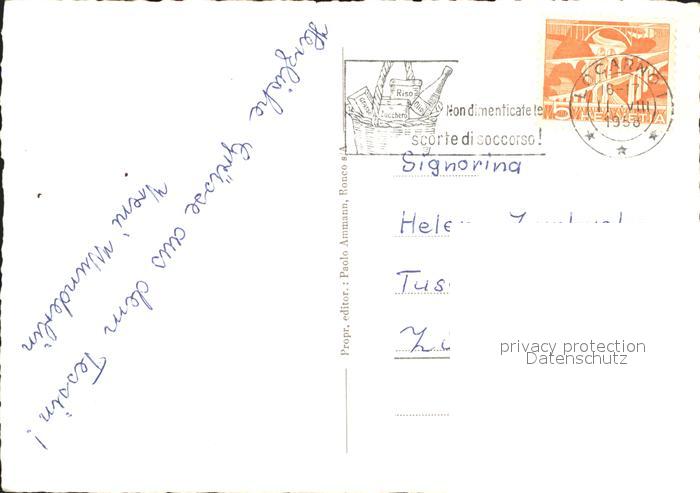 Herzliche
Grüsse aus dem Tessin!
Vreni Wunderlin
Propr. editor.: Paolo Ammann, Ronco s/A
Riso
Zucchero
Olio
Non dimenticate le
scorte di soccorso!
LOCARNO 1
18-17
VIII
1958
5
HELVETIA
Signorina
privacy protection
Datenschutz